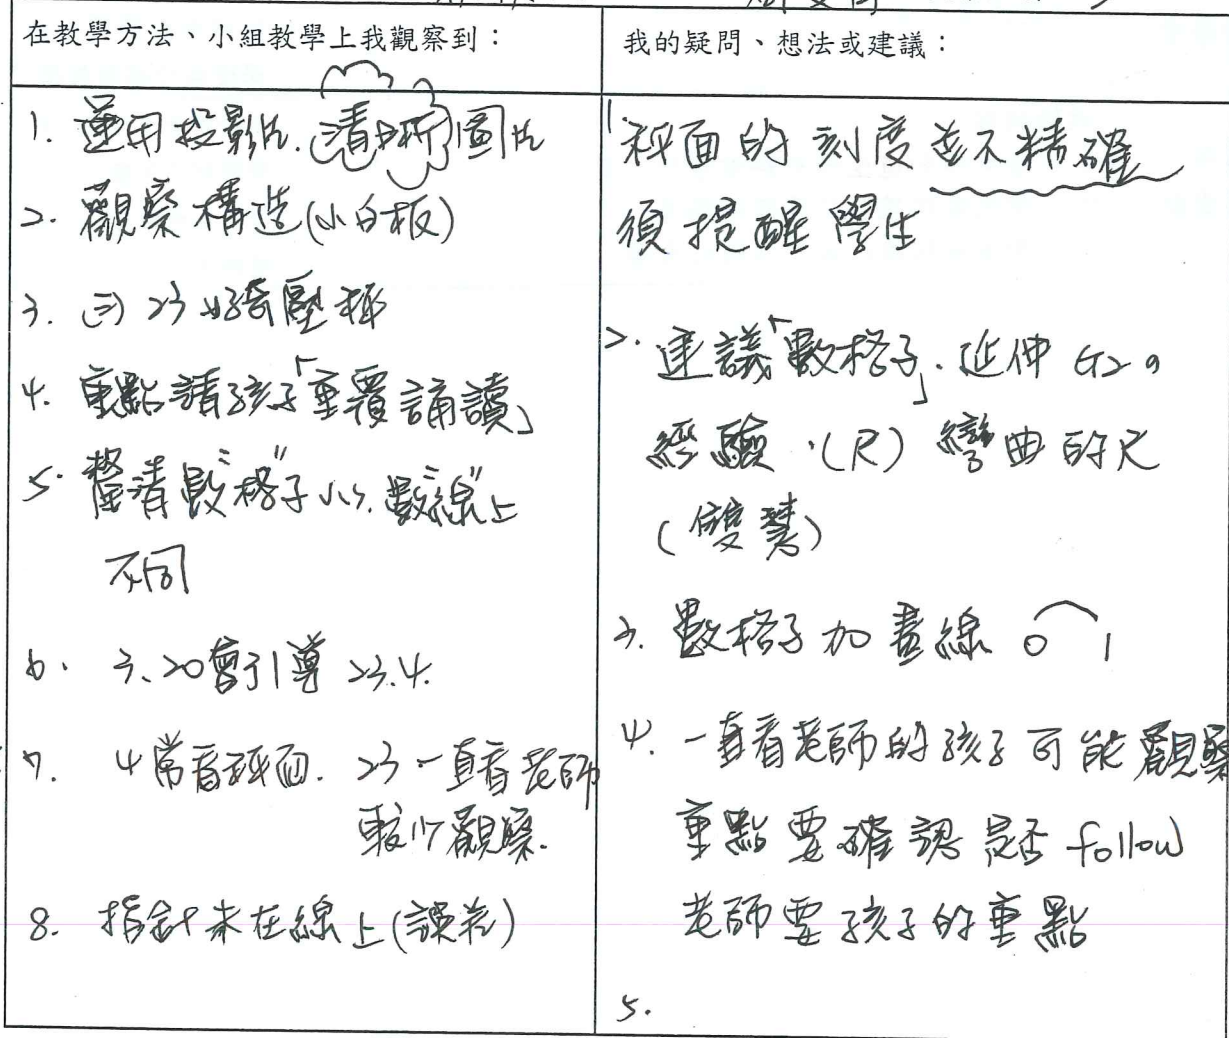 在教學方法、小組教學上我觀察到：
1. 運用投影片.清晰圖片
2. 觀察構造(小白板)
3. 23好奇壓秤
4. 重點請孩子「重覆誦讀」
5. 釐清數"格"子 數"線"上
不同
6. 3、20會引導23.4.
7. 4常看秤面. 23一直看老師
較少觀察.
8. 指針未在線上(誤差)
我的疑問、想法或建議：
1 秤面的刻度並不精確
須提醒學生
2. 建議「數格子」.延伸G2的
經驗.(尺)彎曲的尺
(雙慧)
3. 數格子加畫線 0 1
4. 一直看老師的孩子可能觀察
重點要確認是否follow
老師要孩子的重點
5.